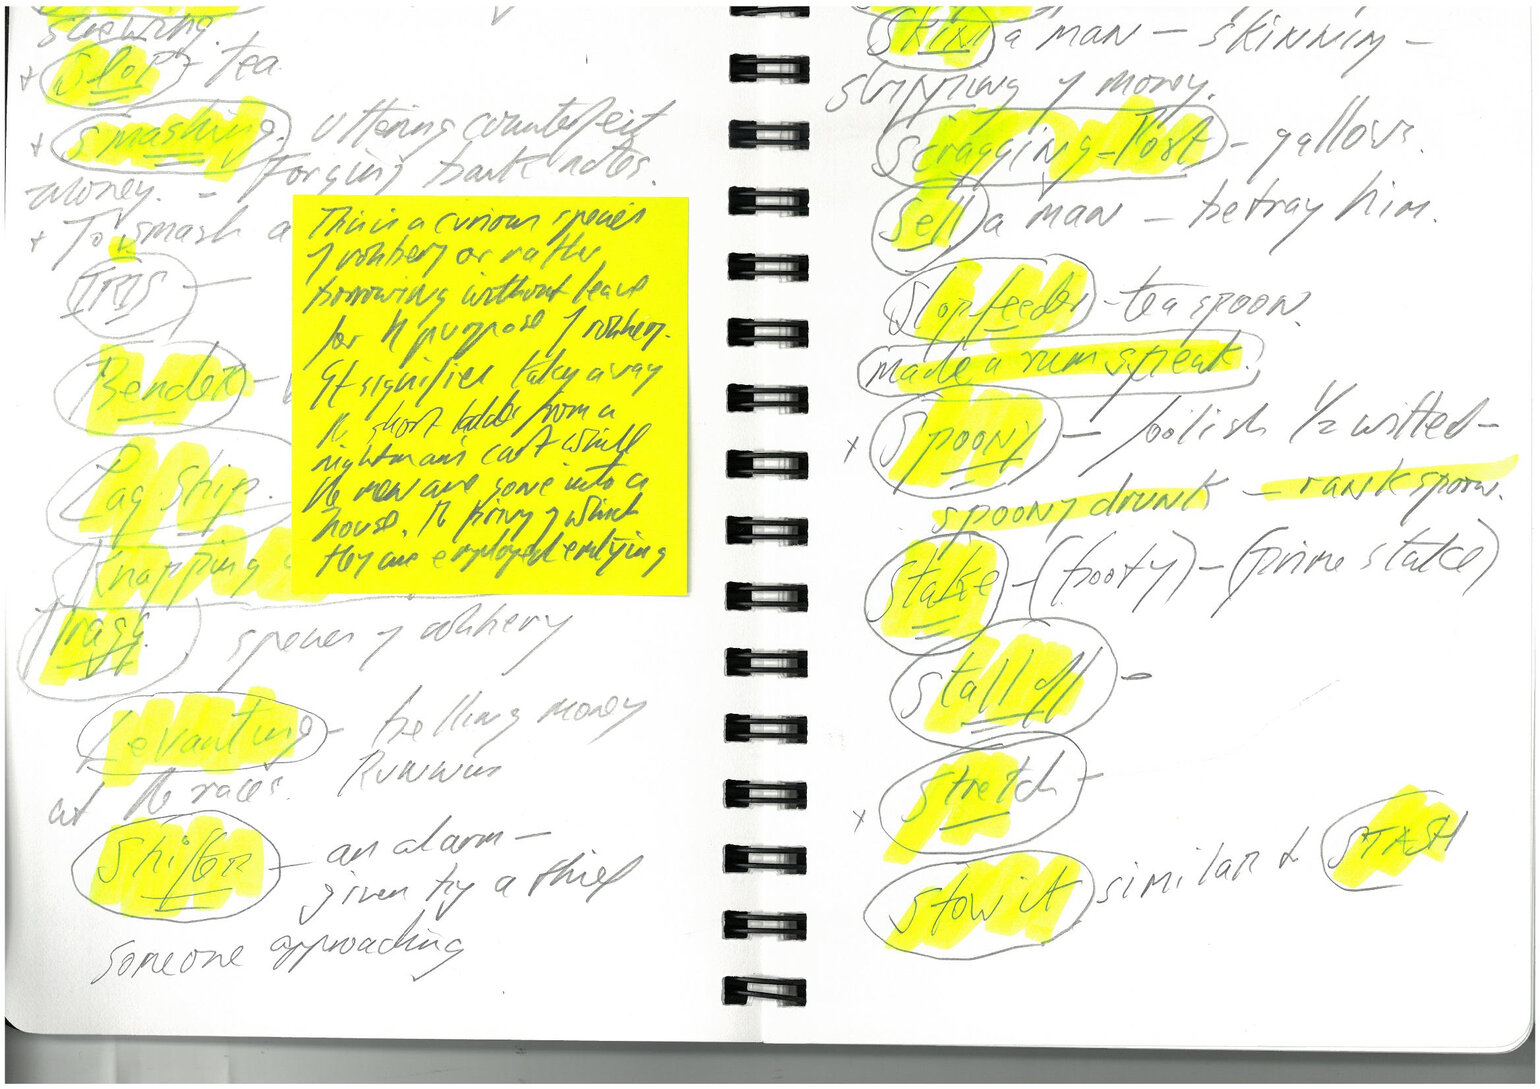 screwing.
+ Slop - tea
+ smashing. uttering counterfeit
money. - Forging bank notes.
+ To smash a
IRIS -
Bender -
Lag Ship.
Knapping
Fragg. species of robbery
Levanting - betting money
at the races. Runners
Shifter - an alarm -
given by a thief
someone approaching
This is a curious species
of robbery or rather
borrowing without leave
for the purpose of robbery.
It signifies taking away
the short ladder from a
nightman's cart while
the men are gone into a
house, the privy of which
they are employed emptying
Skin a man - skinning -
stripping of money.
Scragging-Post - gallows.
Sell a man - betray him.
Slop feeder - tea spoon.
made a rum speak.
x Spoony - foolish 1/2 witted -
spoony drunk - rank spoon.
Stake - (booty) - (prime stake)
Stall off -
x Stretch -
Stow it similar to STASH